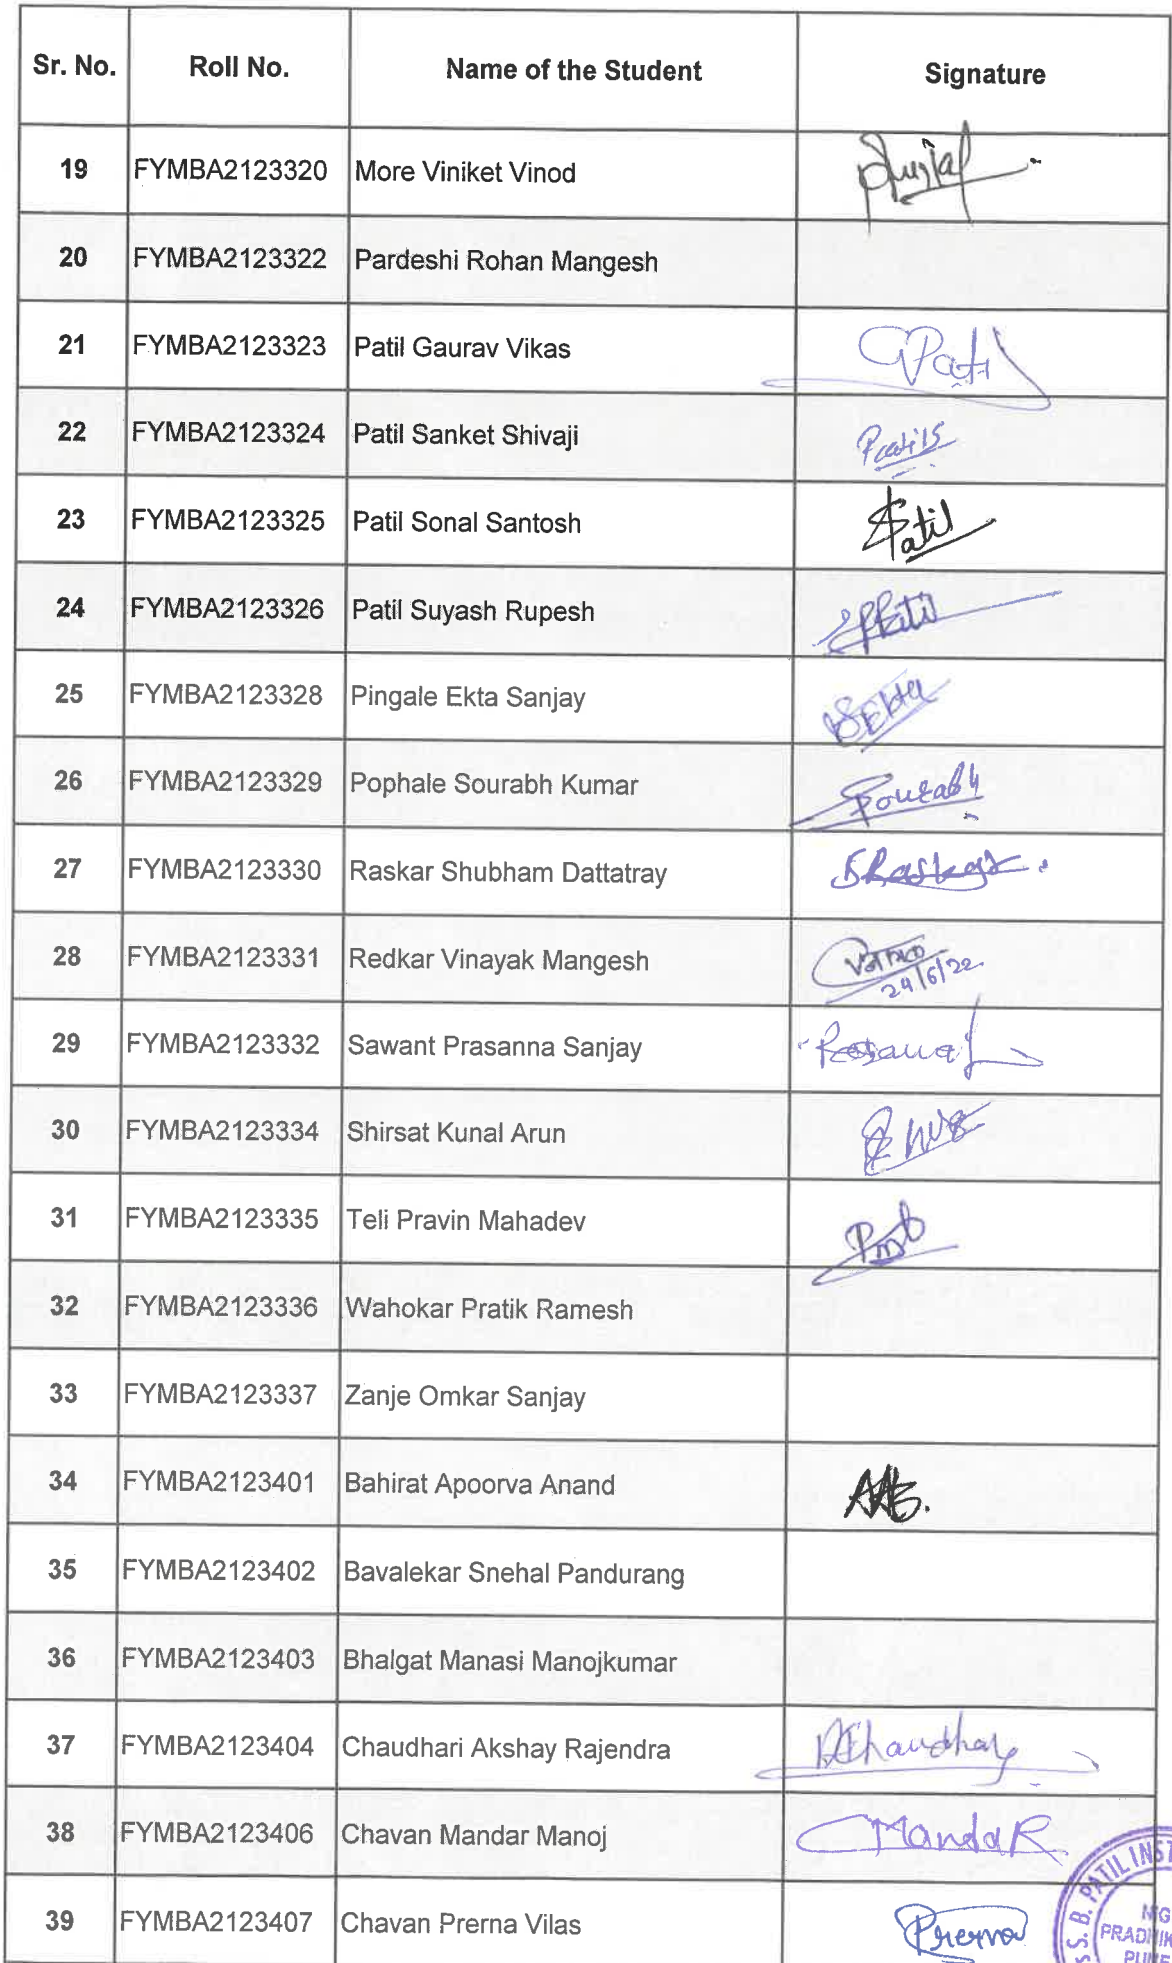 Sr. No. Roll No. Name of the Student Signature
19 FYMBA2123320 More Viniket Vinod
20 FYMBA2123322 Pardeshi Rohan Mangesh
21 FYMBA2123323 Patil Gaurav Vikas GPatil
22 FYMBA2123324 Patil Sanket Shivaji PatilS
23 FYMBA2123325 Patil Sonal Santosh SPatil
24 FYMBA2123326 Patil Suyash Rupesh SPatil
25 FYMBA2123328 Pingale Ekta Sanjay Ekta
26 FYMBA2123329 Pophale Sourabh Kumar Sourabh
27 FYMBA2123330 Raskar Shubham Dattatray SRaskar.
28 FYMBA2123331 Redkar Vinayak Mangesh
24/6/22
29 FYMBA2123332 Sawant Prasanna Sanjay
30 FYMBA2123334 Shirsat Kunal Arun
31 FYMBA2123335 Teli Pravin Mahadev
32 FYMBA2123336 Wahokar Pratik Ramesh
33 FYMBA2123337 Zanje Omkar Sanjay
34 FYMBA2123401 Bahirat Apoorva Anand AAB.
35 FYMBA2123402 Bavalekar Snehal Pandurang
36 FYMBA2123403 Bhalgat Manasi Manojkumar
37 FYMBA2123404 Chaudhari Akshay Rajendra AChaudhary
38 FYMBA2123406 Chavan Mandar Manoj MandaR
39 FYMBA2123407 Chavan Prerna Vilas Prerna
S. B. PATIL INST